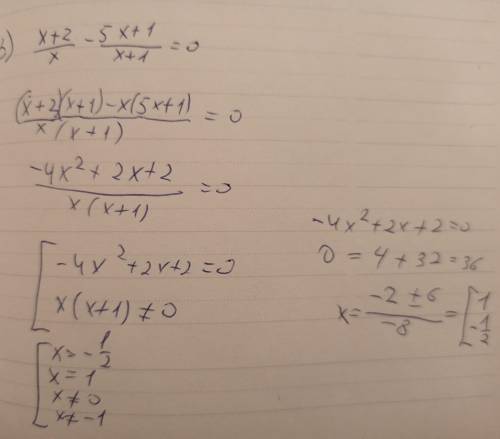 б) (x+2)/x - (5x+1)/(x+1) = 0
((x+2)(x+1) - x(5x+1))/(x(x+1)) = 0
(-4x² + 2x + 2)/(x(x+1)) = 0
[ -4x² + 2x + 2 = 0
x(x+1) ≠ 0
[ x = -1/2
x = 1
x ≠ 0
x ≠ -1
-4x² + 2x + 2 = 0
D = 4 + 32 = 36
x = (-2 ± 6)/(-8) = [ 1
-1/2